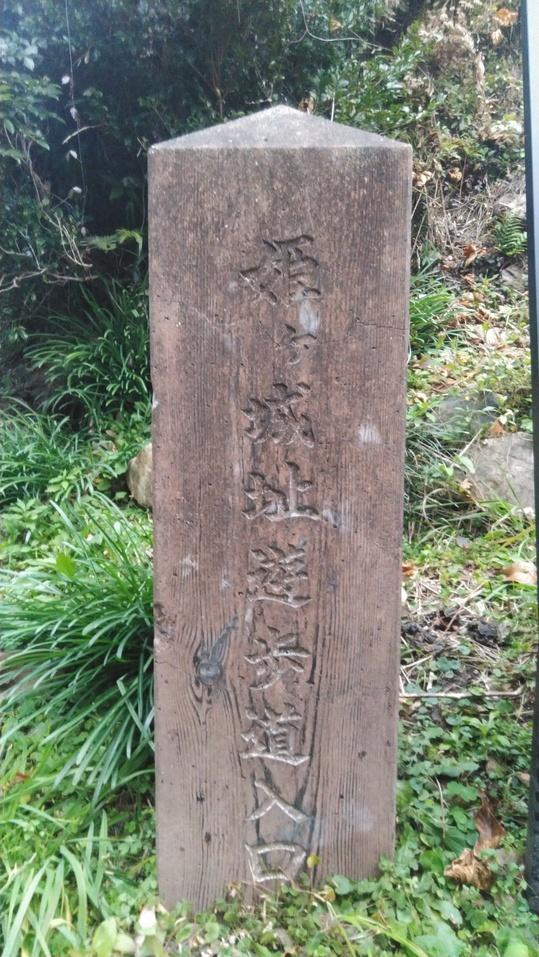 姫ヶ城址遊歩道入口